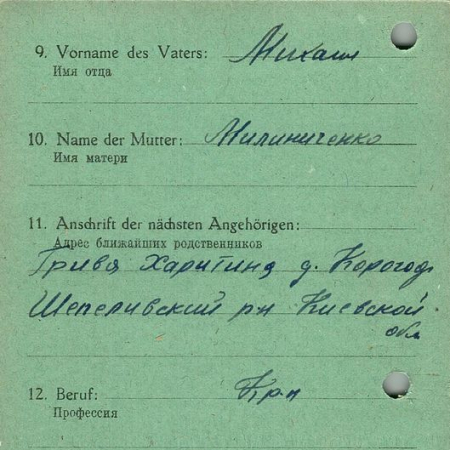 9. Vorname des Vaters: Михаил
Имя отца
10. Name der Mutter: Милиниченко
Имя матери
11. Anschrift der nächsten Angehörigen:
Адрес ближайших родственников
Грива Харитина д. Корогод
Шепеливский рн Киевской
обл
12. Beruf: Кр-н
Профессия